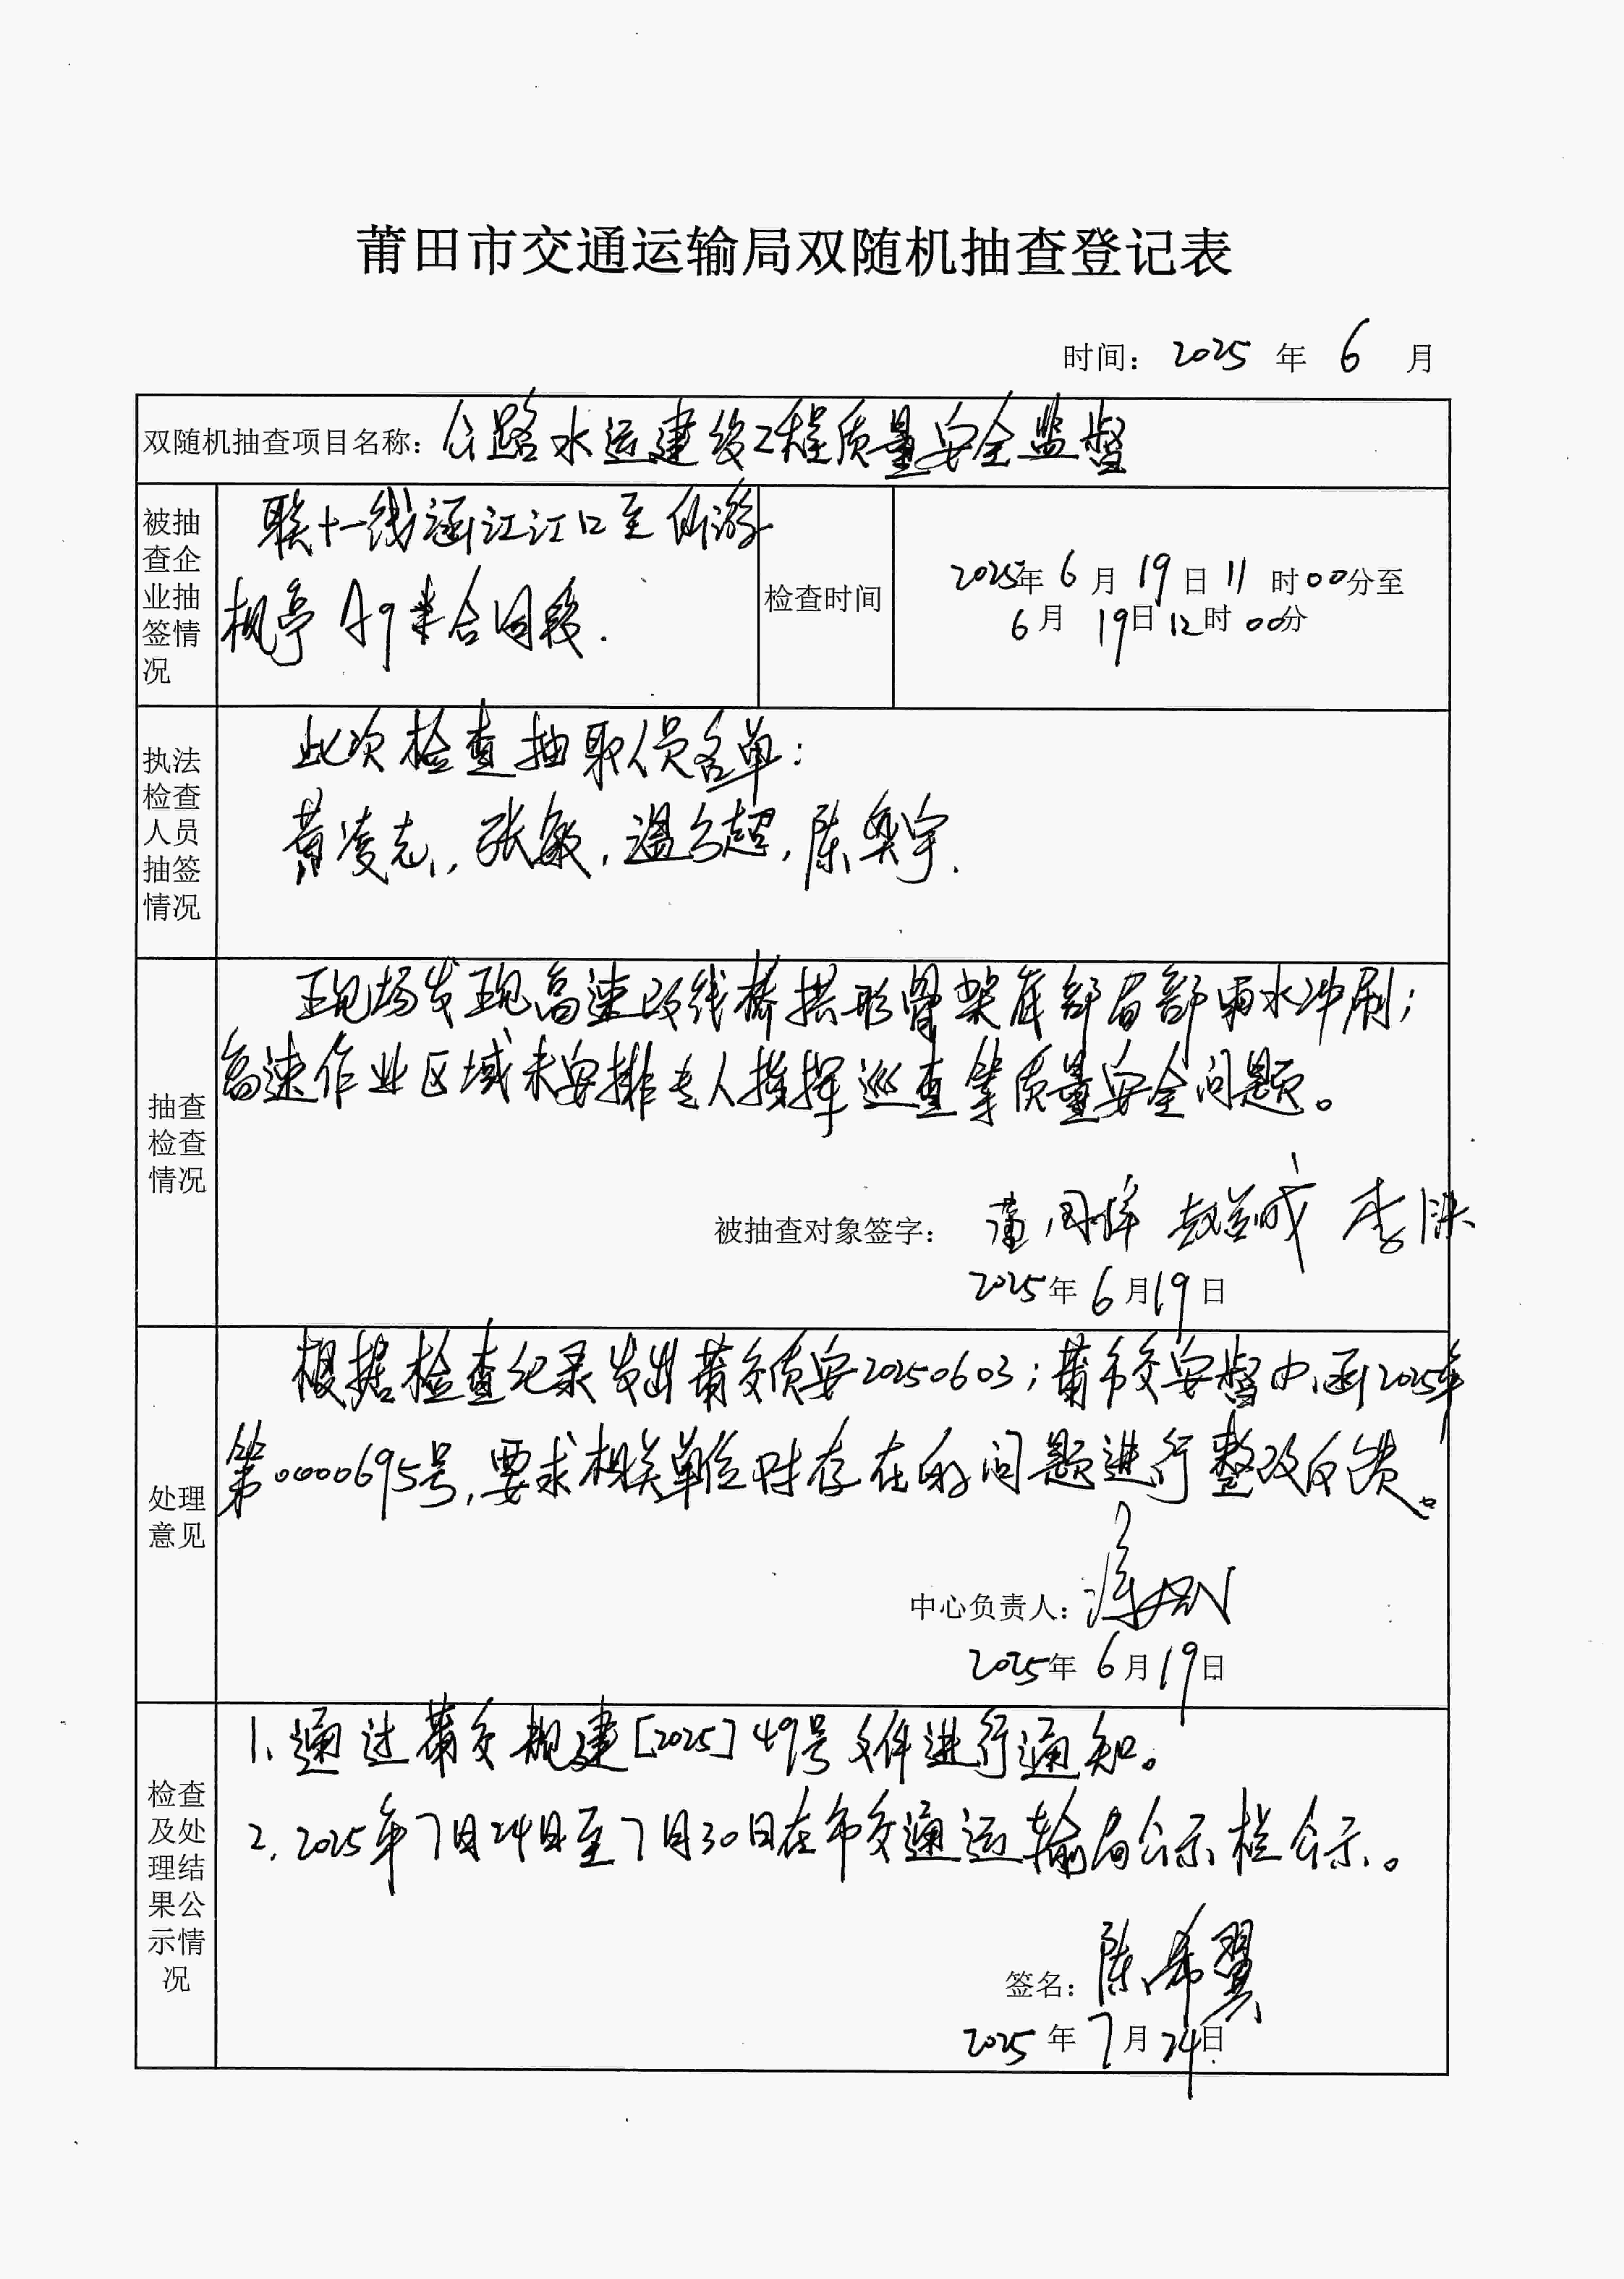 莆田市交通运输局双随机抽查登记表
时间: 2025 年 6 月
双随机抽查项目名称: 公路水运建设工程质量安全监督
被抽查企业抽签情况
联十一线涵江江口至仙游
枫亭 A9 合同段.
检查时间
2025年 6 月 19 日 11 时 00分至
6 月 19日 12 时 00分
执法检查人员抽签情况
此次检查抽取人员名单:
黄凌志, 张敏, 温 超, 陈奥宇.
抽查检查情况
现场发现高速改线桥拱形骨架底部局部雨水冲刷;
高速作业区域未安排专人指挥巡查等质量安全问题。
被抽查对象签字:
2025年 6 月19 日
处理意见
根据检查纪录发出莆交质安20250603; 莆市交安督中函2025年
第0000695号, 要求相关单位对存在的问题进行整改反馈。
中心负责人:
2025年 6 月 19日
检查及处理结果公示情况
1. 通过莆交规建[2025]49号文件进行通知。
2. 2025年7月24日至7月30日在市交通运输局公示栏公示。
签名: 陈希翼
2025 年 7 月 24日